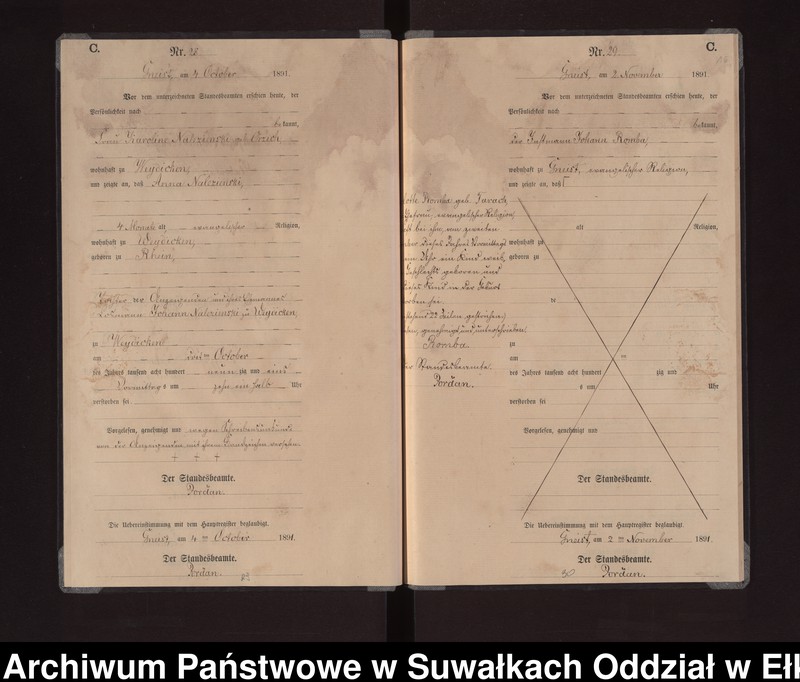 C.
Nr. 28.
Gneist, am 4 October 1891.
Vor dem unterzeichneten Standesbeamten erschien heute, der
Persönlichkeit nach
bekannt,
Karoline Nalezinski geb.
wohnhaft zu Weydicken,
und zeigte an, daß Anna Nalezinski,
4 Monate alt, evangelischer Religion,
wohnhaft zu Weydicken,
geboren zu Rhein,
Tochter der Anzeigenden und ihres Ehemannes
Losmann Johann Nalezinski zu Weydicken,
zu Weydicken
am October
des Jahres tausend acht hundert neun zig und eins
Vormittags um zehn ein halb Uhr
verstorben sei
Vorgelesen, genehmigt und wegen Schreibensunkunde
von der Anzeigenden mit ihrem Handzeichen versehen.
+ + +
Der Standesbeamte.
Jordan.
Die Uebereinstimmung mit dem Hauptregister beglaubigt.
Gneist, am 4 ten October 1891.
Der Standesbeamte.
Jordan.
C.
Nr. 29.
Gneist, am 2 November 1891
Vor dem unterzeichneten Standesbeamten erschien heute, der
Persönlichkeit nach
bekannt,
der Instmann Johann Romba,
wohnhaft zu Gneist, evangelischer Religion,
und zeigte an, daß
Romba geb.
evangelischer Religion,
bei ihm, am zweiten
dieses Jahres Vormittags
Uhr ein Kind weib
Geschlechts geboren und
dieses Kind in der Geburt
sei
22 Zeilen gestrichen
genehmigt und unterschrieben
Romba
Standesbeamte.
Jordan.
alt Religion,
wohnhaft zu
geboren zu
de
zu
am ten
des Jahres tausend acht hundert zig und
s um Uhr
verstorben sei
Vorgelesen, genehmigt und
Der Standesbeamte.
Die Uebereinstimmung mit dem Hauptregister beglaubigt.
Gneist, am 2 ten November 1891
Der Standesbeamte.
30 Jordan.
Archiwum Państwowe w Suwałkach Oddział w Ełk